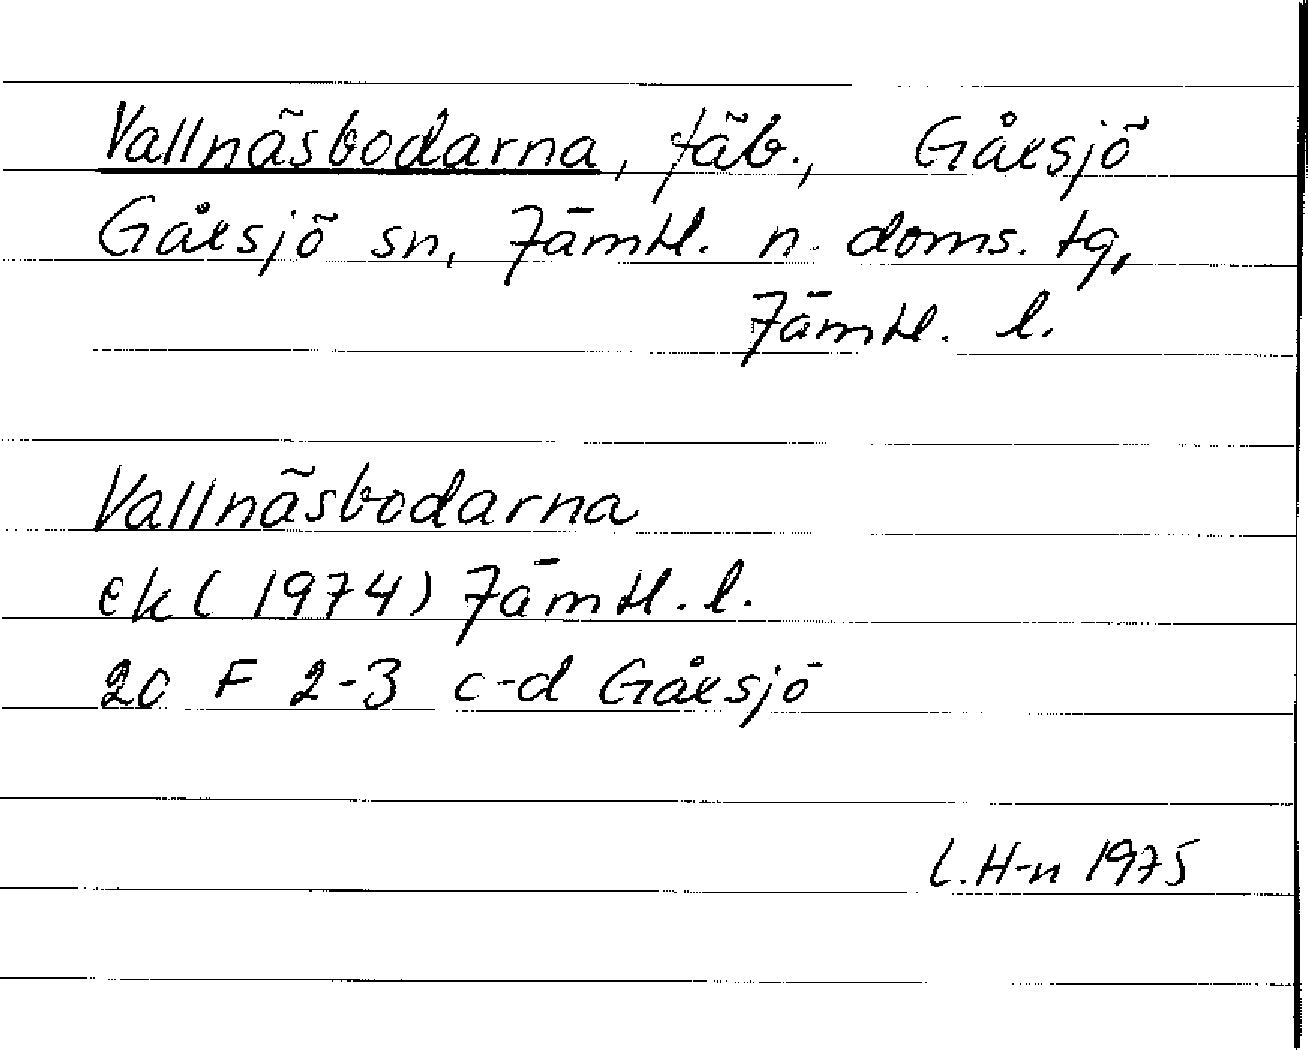 Vallnäsbodarna, fäb., Gåxsjö
Gåxsjö sn, Jämtl. n. doms. tg,
Jämtl. l.
Vallnäsbodarna
ek (1974) Jämtl. l.
20 F 2-3 c-d Gåxsjö
L.H-n 1975